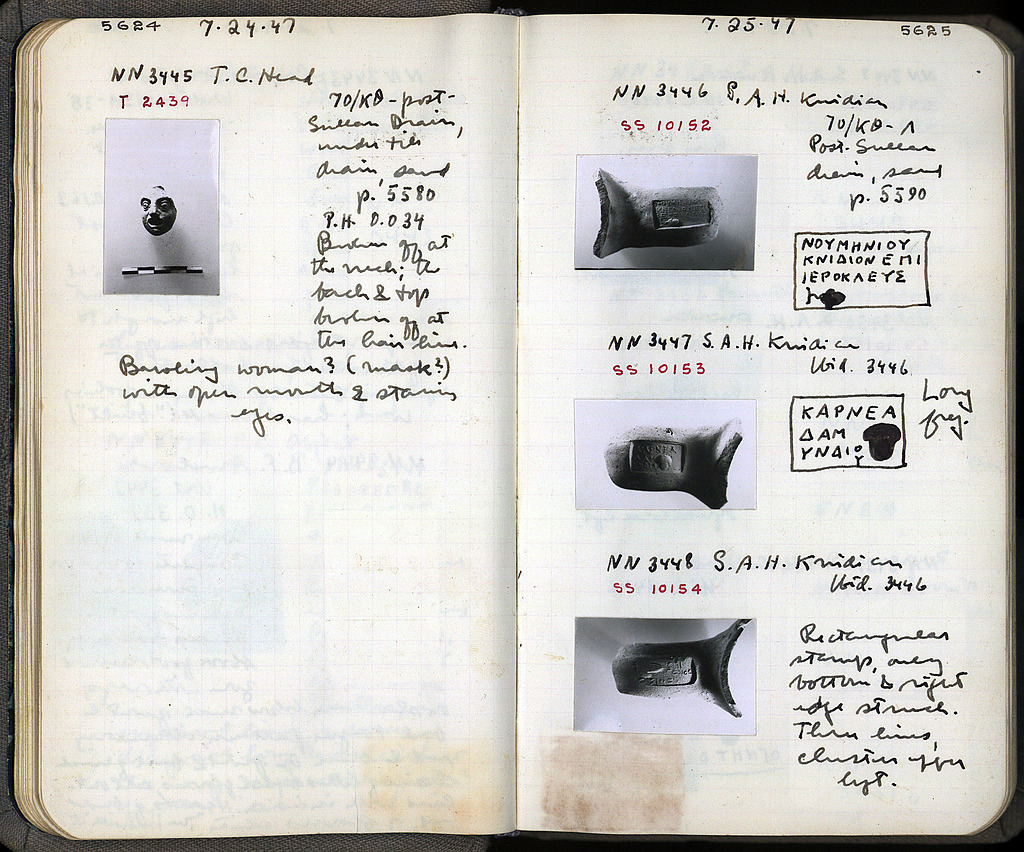 5624
7.24.47
NN 3445 T.C. Head
T 2439
70/ΚΘ-post-
Sullan Drain,
under tile
drain, sand
p. 5580
P.H. 0.034
Broken off at
the neck; the
back & top
broken off at
the hair line.
Bawling woman? (mask?)
with open mouth & staring
eyes.
7.25.47
5625
NN 3446 S.A.H. Knidian
SS 10152
70/ΚΘ-Λ
Post-Sullan
drain, sand
p. 5590
ΝΟΥΜΗΝΙΟΥ
ΚΝΙΔΙΟΝ ΕΠΙ
ΙΕΡΟΚΛΕΥΣ
NN 3447 S.A.H. Knidian
SS 10153
Ibid. 3446
Long
frg.
ΚΑΡΝΕΑ
ΔΑΜ
ΥΝΔΙΟ
Υ
NN 3448 S.A.H. Knidian
SS 10154
Ibid. 3446
Rectangular
stamp, only
bottom & right
edge struck.
Three lines,
cluster upper
left.